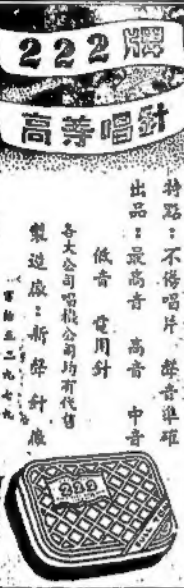 222牌
高等唱針
特點：不傷唱片　聲音準確
出品：最高音　高音　中音
低音　電用針
各大公司唱機公司均有代售
製造廠：新聲針廠
電話五二九七九
222